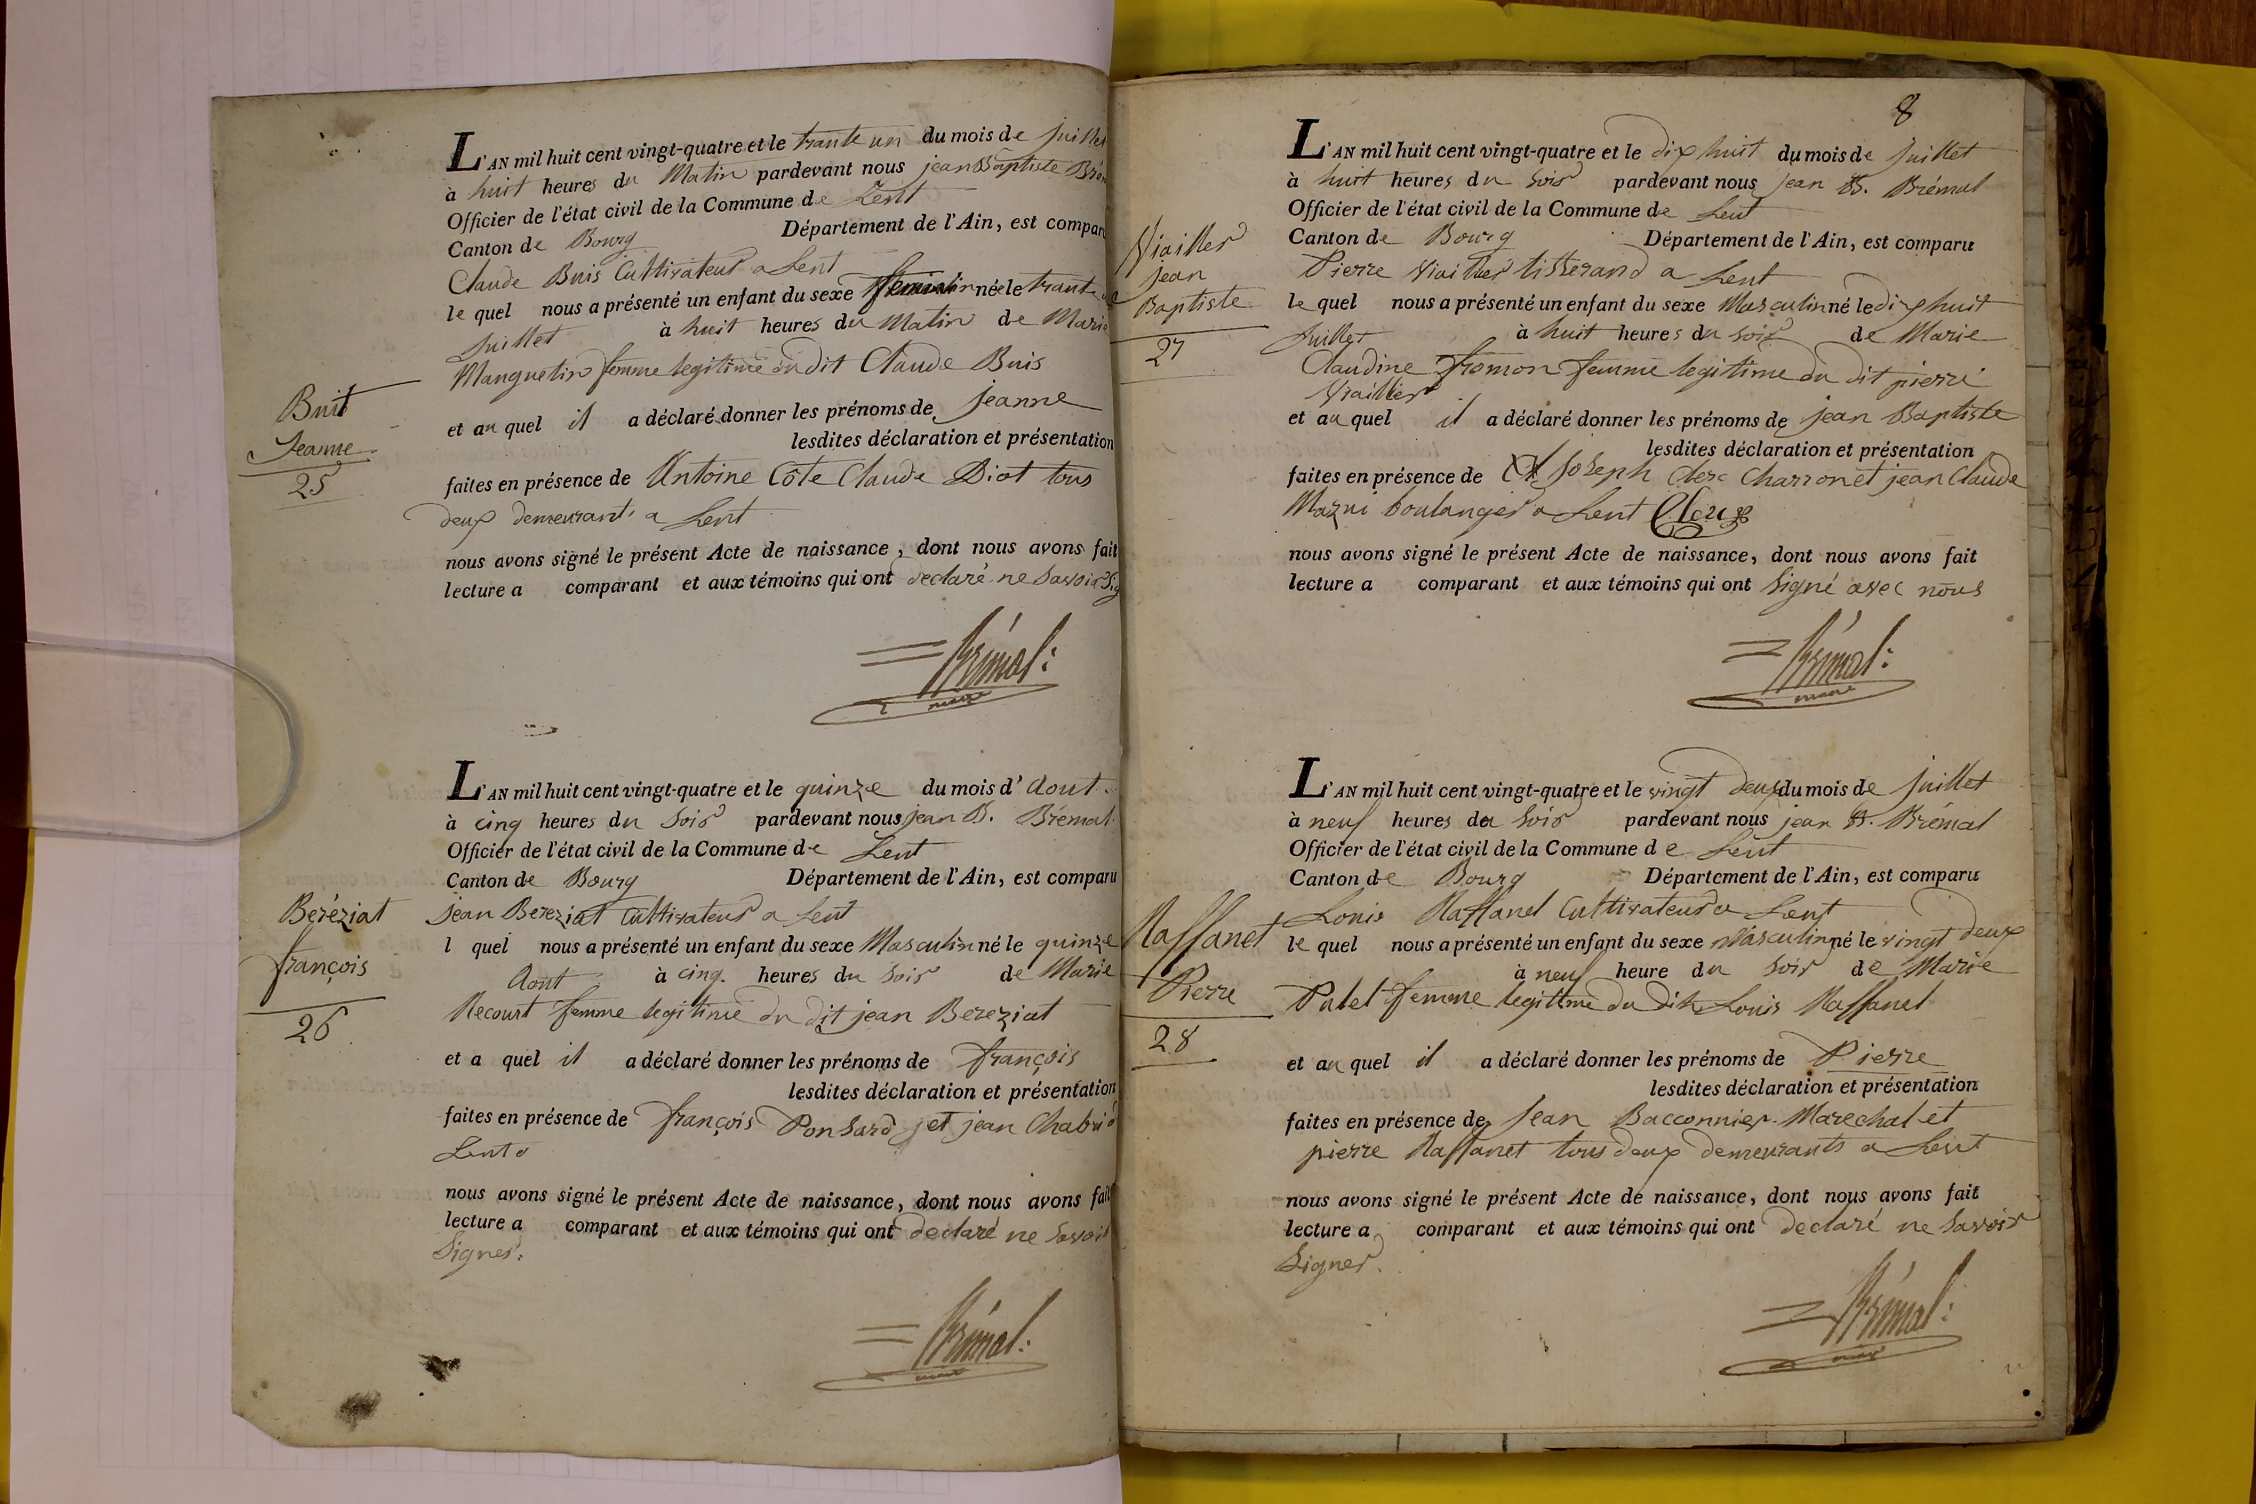 L'AN mil huit cent vingt-quatre et le trante un du mois de juillet
à huit heures du Matin pardevant nous jean Baptiste
Officier de l'état civil de la Commune de Lent
Canton de Bourg Département de l'Ain, est comparu
Claude Buis Cultivateur a Lent
le quel nous a présenté un enfant du sexe né le trante
juillet à huit heures du Matin de Marie
Manguetin femme legitime du dit Claude Buis
et au quel il a déclaré donner les prénoms de jeanne
lesdites déclaration et présentation
faites en présence de Antoine Côte Claude Diot tous
deux demeurant a Lent
nous avons signé le présent Acte de naissance, dont nous avons fait
lecture a comparant et aux témoins qui ont declaré ne Savoir Sig
Brémal:
maire
Buit
Jeanne
25
L'AN mil huit cent vingt-quatre et le quinze du mois d'Aout
à cinq heures du Soir pardevant nous jean B. Brémal
Officier de l'état civil de la Commune de Lent
Canton de Bourg Département de l'Ain, est comparu
jean Bereziat Cultivateur a Lent
l quel nous a présenté un enfant du sexe Masculin né le quinze
Aout à cinq heures du Soir de Marie
Recourt femme legitime du dit jean Bereziat
et a quel il a déclaré donner les prénoms de françois
lesdites déclaration et présentation
faites en présence de françois Ponsard et jean
Lent
nous avons signé le présent Acte de naissance, dont nous avons fait
lecture a comparant et aux témoins qui ont declaré ne Savoir
Signer.
Brémal:
maire
Beréziat
françois
26
8
L'AN mil huit cent vingt-quatre et le dix huit du mois de juillet
à huit heures du Soir pardevant nous jean B. Brémal
Officier de l'état civil de la Commune de Lent
Canton de Bourg Département de l'Ain, est comparu
Pierre Viailler tisserand a Lent
le quel nous a présenté un enfant du sexe Masculin né le dix huit
juillet à huit heures du Soir de Marie
Claudine fromon femme legitime du dit pierre
Viailler
et au quel il a déclaré donner les prénoms de jean Baptiste
lesdites déclaration et présentation
faites en présence de Joseph Clerc Charron et jean Claude
Mazui boulanger a Lent
nous avons signé le présent Acte de naissance, dont nous avons fait
lecture a comparant et aux témoins qui ont Signé avec nous
Brémal:
maire
Viailler
jean
Baptiste
27
L'AN mil huit cent vingt-quatre et le vingt deux du mois de juillet
à neuf heures du Soir pardevant nous jean B. Brémal
Officier de l'état civil de la Commune de Lent
Canton de Bourg Département de l'Ain, est comparu
Louis Raffanel Cultivateur a Lent
le quel nous a présenté un enfant du sexe Masculin né le vingt deux
à neuf heure du Soir de Marie
Patet femme legitime du dit Louis Raffanel
et au quel il a déclaré donner les prénoms de Pierre
lesdites déclaration et présentation
faites en présence de Jean Bacconnier Marechal et
pierre Raffanet tous deux demeurants a Lent
nous avons signé le présent Acte de naissance, dont nous avons fait
lecture a comparant et aux témoins qui ont declaré ne Savoir
Signer.
Brémal:
maire
Raffanet
Pierre
28